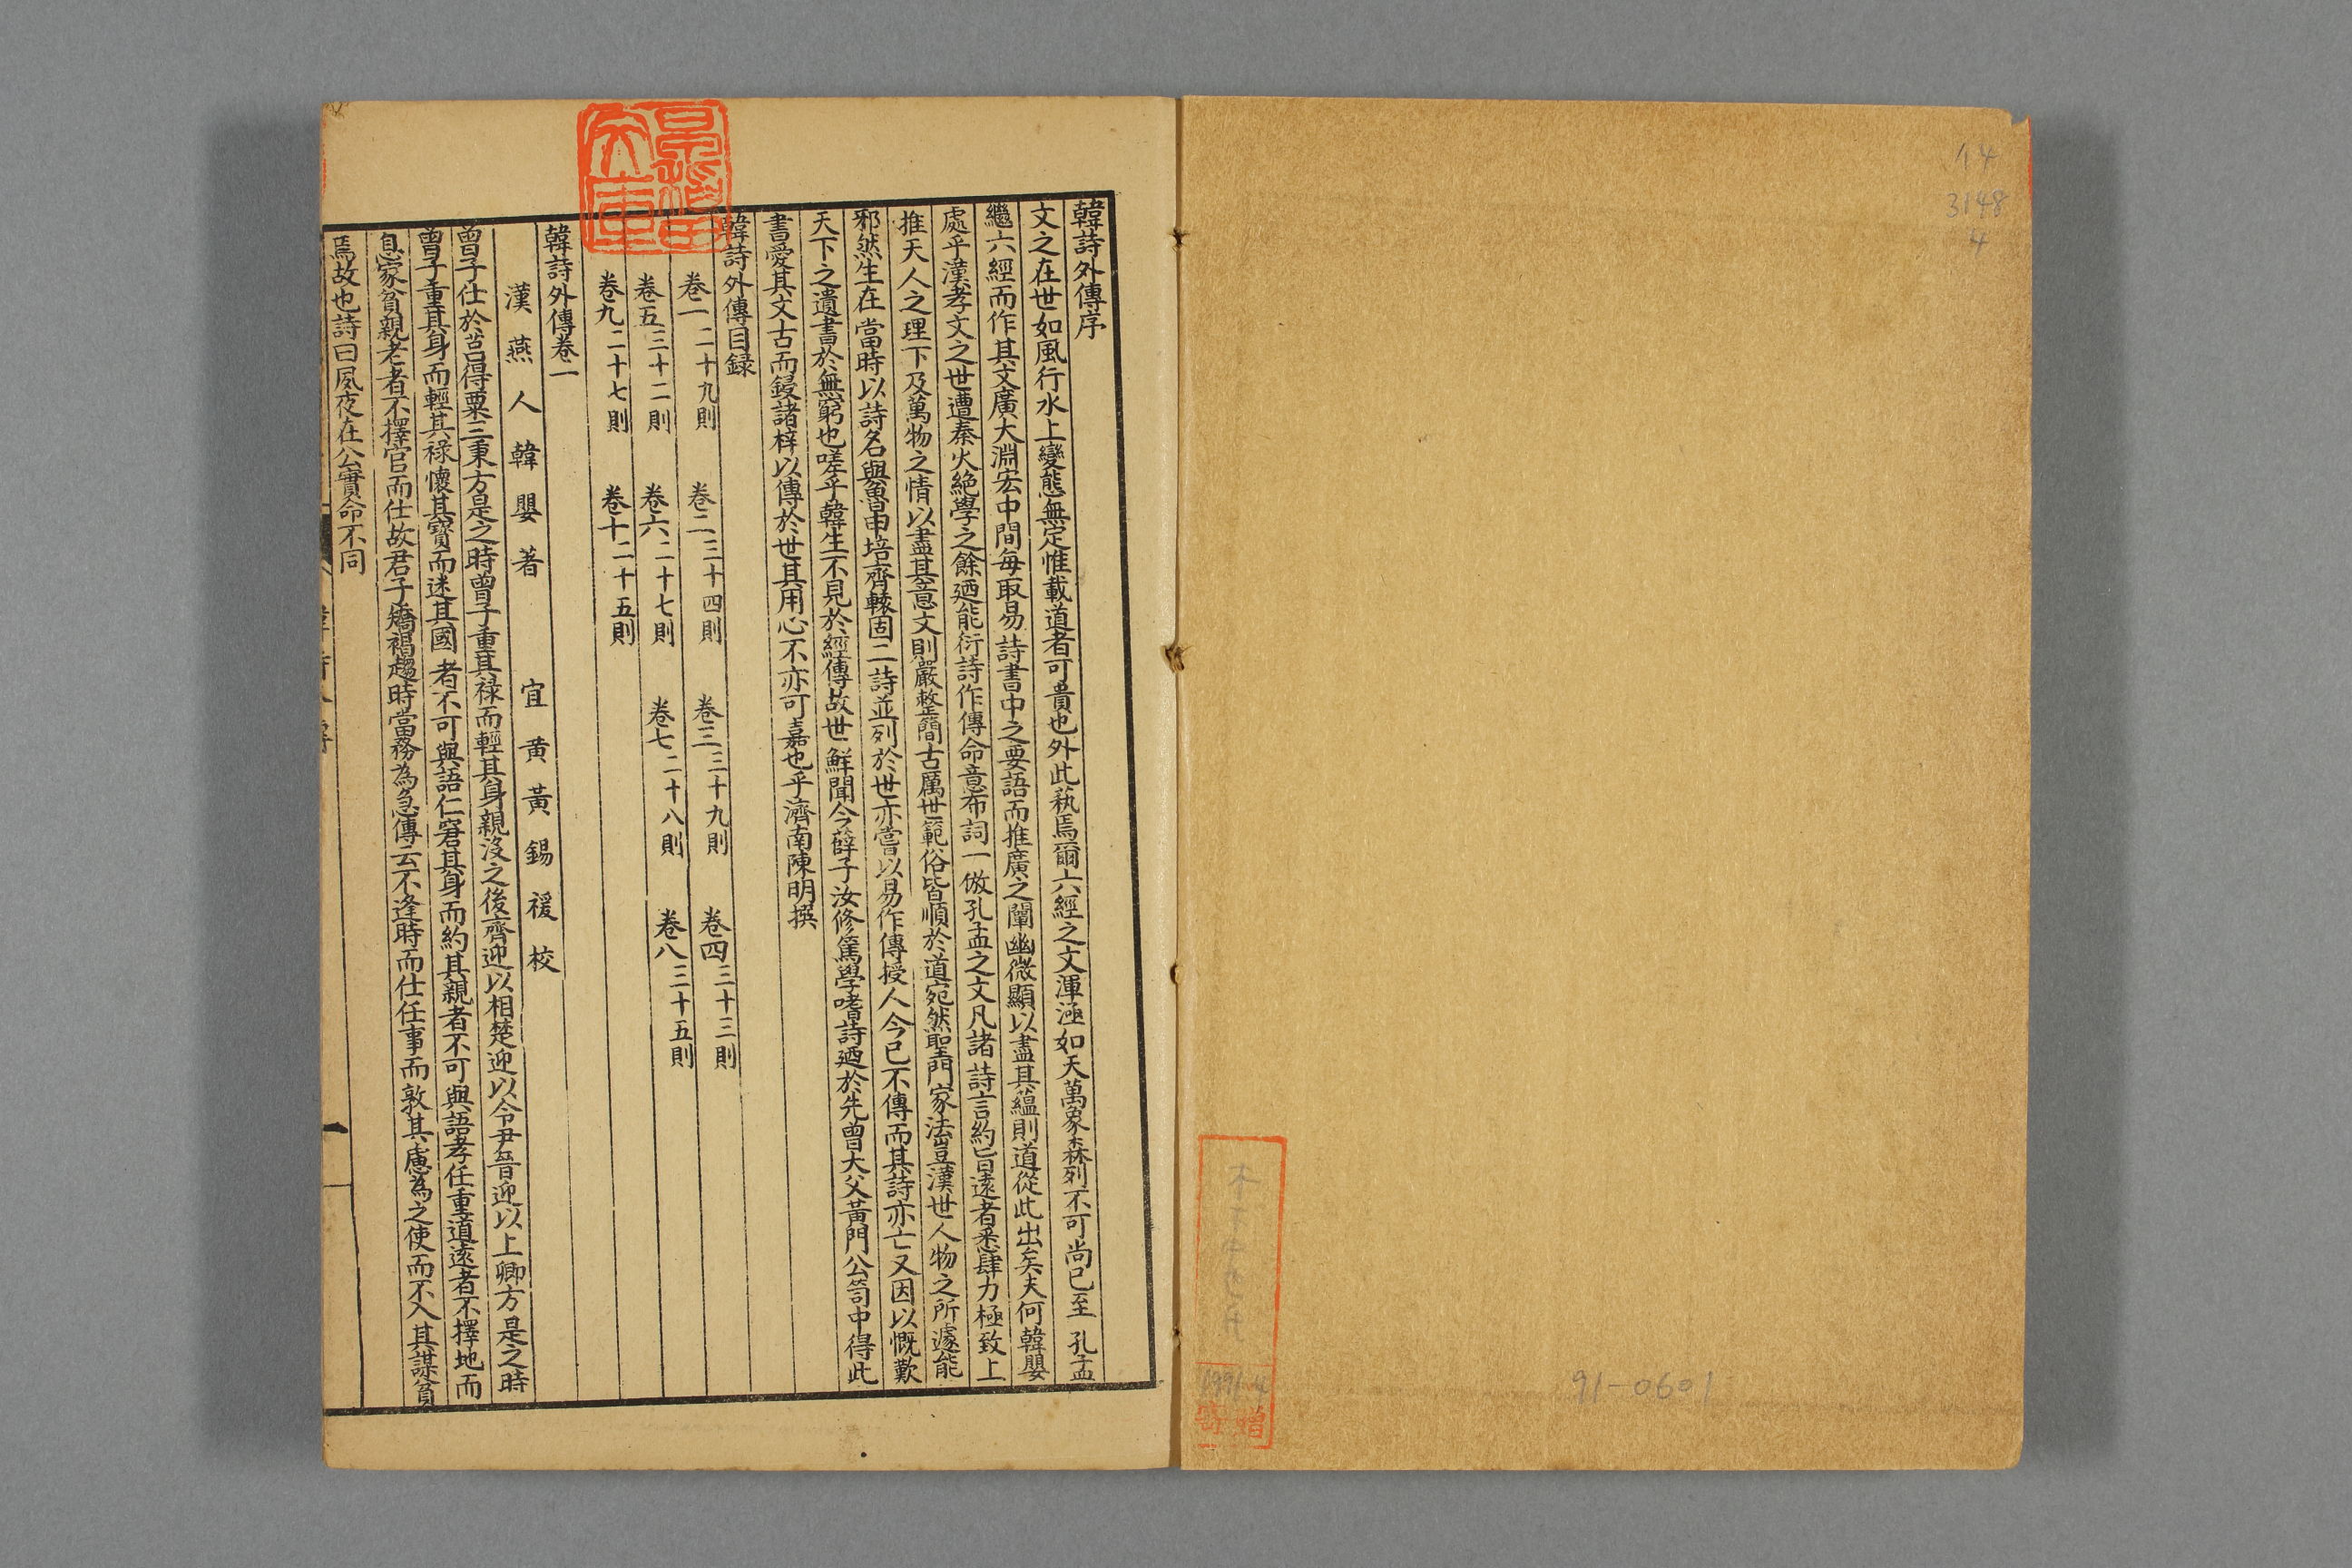 14
3148
4
91-0601
韓詩外傳序
文之在世如風行水上變態無定惟載道者可貴也外此蓺焉爾六經之文渾涵如天萬象森列不可尚已至孔孟
繼六經而作其文廣大淵宏中間每取易詩書中之要語而推廣之闡幽微顯以盡其蘊則道從此出矣夫何韓嬰
處乎漢孝文之世遭秦火絶學之餘廼能衍詩作傳命意布詞一倣孔孟之文凡諸詩言約旨遠者悉肆力極致上
推天人之理下及萬物之情以盡其意文則嚴整簡古厲世範俗皆順於道宛然聖門家法豈漢世人物之所遽能
邪然生在當時以詩名與魯申培齊轅固二詩並列於世亦嘗以易作傳授人今已不傳而其詩亦亡又因以慨歎
天下之遺書於無窮也嗟乎韓生不見於經傳故世鮮聞今薛子汝修篤學嗜詩廼於先曾大父黃門公笥中得此
書愛其文古而鋟諸梓以傳於世其用心不亦可嘉也乎濟南陳明撰
韓詩外傳目録
卷一二十九則 卷二三十四則 卷三三十九則 卷四三十三則
卷五三十二則 卷六二十七則 卷七二十八則 卷八三十五則
卷九二十七則 卷十二十五則
韓詩外傳卷一
漢燕人韓嬰著 宜黃黃錫禐校
曾子仕於莒得粟三秉方是之時曾子重其祿而輕其身親没之後齊迎以相楚迎以令尹晉迎以上卿方是之時
曾子重其身而輕其祿懷其寶而迷其國者不可與語仁窘其身而約其親者不可與語孝任重道遠者不擇地而
息家貧親老者不擇官而仕故君子矯褐趨時當務為急傳云不逢時而仕任事而敦其慮為之使而不入其謀貧
焉故也詩曰夙夜在公實命不同
一